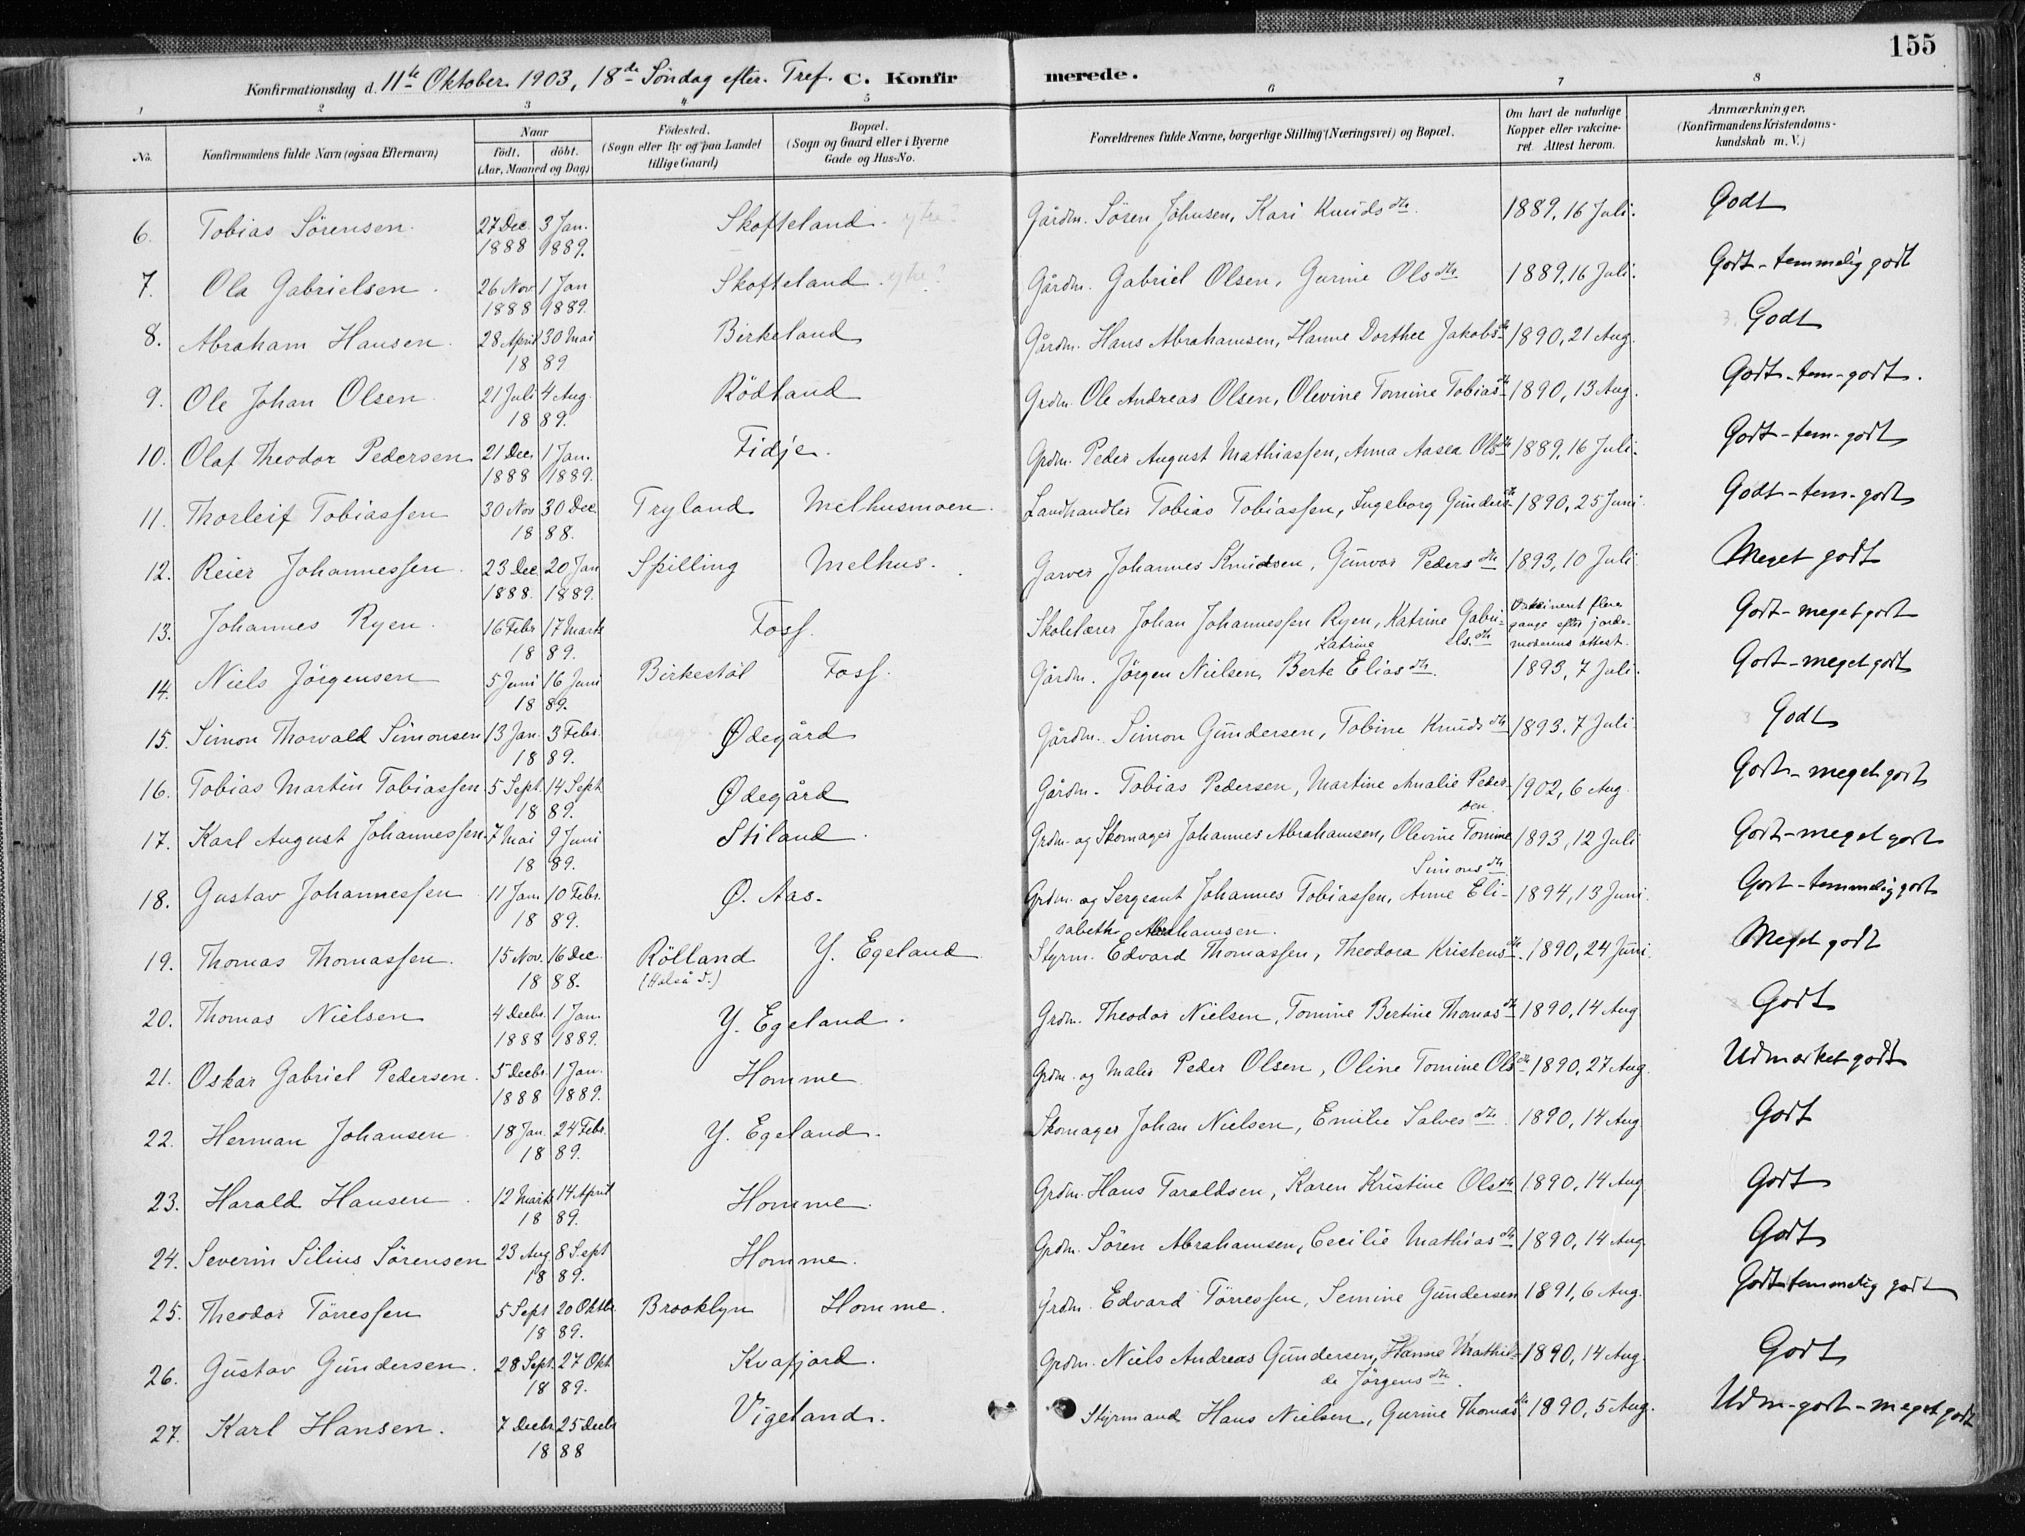 155
Konfirmationsdag d. 11te Oktober 1903, 18de Søndag efter Tref. C. Konfirmerede.
1 2 3 4 5 6 7 8
No. Konfirmandens fulde Navn (ogsaa Efternavn) Naar født. døbt. (Aar, Maaned og Dag) Fødested. (Sogn eller By og paa Landet tillige Gaard) Bopæl. (Sogn og Gaard eller i Byerne Gade og Hus-No. Forældrenes fulde Navne, borgerlige Stilling (Næringsvei) og Bopæl. Om havt de naturlige Kopper eller vakcineret. Attest herom. Anmærkninger. (Konfirmandens Kristendomskundskab m. V.)
6. Tobias Sørensen. 27 Dec. 1888 3 Jan. 1889. Skofteland. ytre? Gårdm. Søren Johnsen, Kari Knudsdtr. 1889, 16 Juli. Godt
7. Ola Gabrielsen. 26 Nov 1888 1 Jan 1889. Skofteland. ytre? Gårdm. Gabriel Olsen, Gurine Olsdtr 1889, 16 Juli. Godt-temmelig godt
8. Abraham Hansen. 28 April 30 Mai 1889 Birkeland Gårdm. Hans Abrahamsen, Hanne Dorthee Jakobsdtr 1890, 21 Aug. Godt
9. Ole Johan Olsen. 21 Juli 4 Aug. 1889. Rödland Grdm. Ole Andreas Olsen, Olevine Tomine Tobiasdtr 1890, 13 Aug. Godt-tem-godt.
10. Olaf Theodor Pedersen 21 Dec. 1888 1 Jan. 1889. Fidje. Grdm. Peder August Mathiassen, Anna Aasea Olsdtr 1889, 16 Juli. Godt-tem-godt
11. Thorleif Tobiassen 30 Nov 30 Dec 1888. Tryland Melhusmoen. Landhandler Tobias Tobiassen, Ingeborg Gundersdtr 1890, 25 Juni. Godt-tem-godt
12. Reier Johannessen. 23 Dec. 1888. 20 Jan 1889. Spilling Melhus. Garver Johannes Knudsen, Gunvor Pedersdtr 1893, 10 Juli Meget godt
13. Johannes Ryen. 16 Febr 17 Marts 1889. Foss. Skolelærer Johan Johannessen Ryen, Katrine Gabrielsdtr Vakcineret flere gange efter jordemoderens attest. Godt-meget godt
14. Niels Jørgensen 5 Juni 16 Juni 1889. Birkestøl Foss. Gårdm. Jørgen Nielsen, Berte Katrine Eliasdtr. 1893, 7 Juli. Godt-meget godt
15. Simon Thorvald Simonsen 13 Jan. 3 Febr. 1889. Ødegård Gårdm. Simon Gundersen, Tobine Knudsdtr 1893. 7 Juli Godt
16. Tobias Martin Tobiassen 5 Sept. 14 Sept 1889. Ødegård Gårdm. Tobias Pedersen, Martine Amalie Pedersen. 1902, 6 Aug. Godt-meget godt
17. Karl August Johannessen 7 Mai 9 Juni 1889. Stiland. Grdm. og Skomager Johannes Abrahamsen, Olevine Tomine Simonsdtr 1893, 12 Juli Godt-meget godt
18. Gustav Johannessen 11 Jan. 10 Febr. 1889. Ø. Aas. Grdm. og Sergeant Johannes Tobiassen, Anne Elisabeth Abrahamsen. 1894, 13 Juni. Godt-temmelig godt
19. Thomas Thomassen. 15 Nov. 16 Dec. 1888. Rölland (Halså S.) Y. Egeland Styrm. Edvard Thomassen, Theodora Kristensdtr. 1890, 24 Juni. Meget godt
20. Thomas Nielsen 4 Decbr. 1888 1 Jan. 1889. Y. Egeland. Grdm. Theodor Nielsen, Tomine Bertine Thomasdtr 1890, 14 Aug Godt
21. Oskar Gabriel Pedersen. 5 Decbr. 1888 1 Jan. 1889. Homme Grdm. og Maler Peder Olsen, Oline Tomine Olsdtr 1890, 27 Aug. Udmærket godt
22. Herman Johansen. 18 Jan. 24 Febr. 1889. Y. Egeland. Skomager Johan Nielsen, Emilie Salvesdtr. 1890, 14 Aug Godt
23. Harald Hansen. 12 Marts 14 April 1889. Homme. Grdm. Hans Taraldsen, Karen Kristine Olsdtr 1890, 14 Aug. Godt
24. Severin Silius Sørensen 23 Aug. 8 Sept 1889. Homme. Grdm. Søren Abrahamsen, Cecilie Mathiasdtr 1890, 14 Aug. Godt
25. Theodor Tørressen 5 Sept 20 Oktbr 1889. Brooklyn Homme. Grdm. Edvard Tørressen, Semine Gundersen 1891, 6 Aug. Godt temmelig godt
26. Gustav Gundersen. 28 Sept. 27 Okt. 1889. Kvafjord. Grdm. Niels Andreas Gundersen, Hanne Mathilde Jørgensdtr. 1890, 14 Aug. Godt
27. Karl Hansen. 7 Decbr 25 Decbr 1888 Vigeland. Styrmand Hans Nielsen, Gurine Thomasdtr 1890, 5 Aug. Udm-godt-meget godt